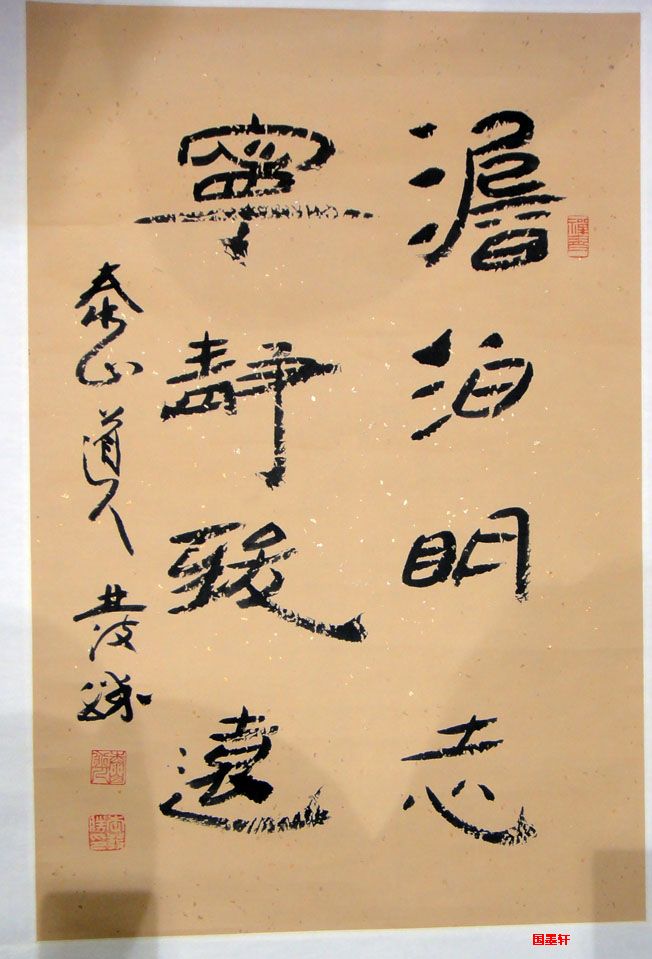 澹泊明志
寧靜致遠
泰山道人
国墨轩